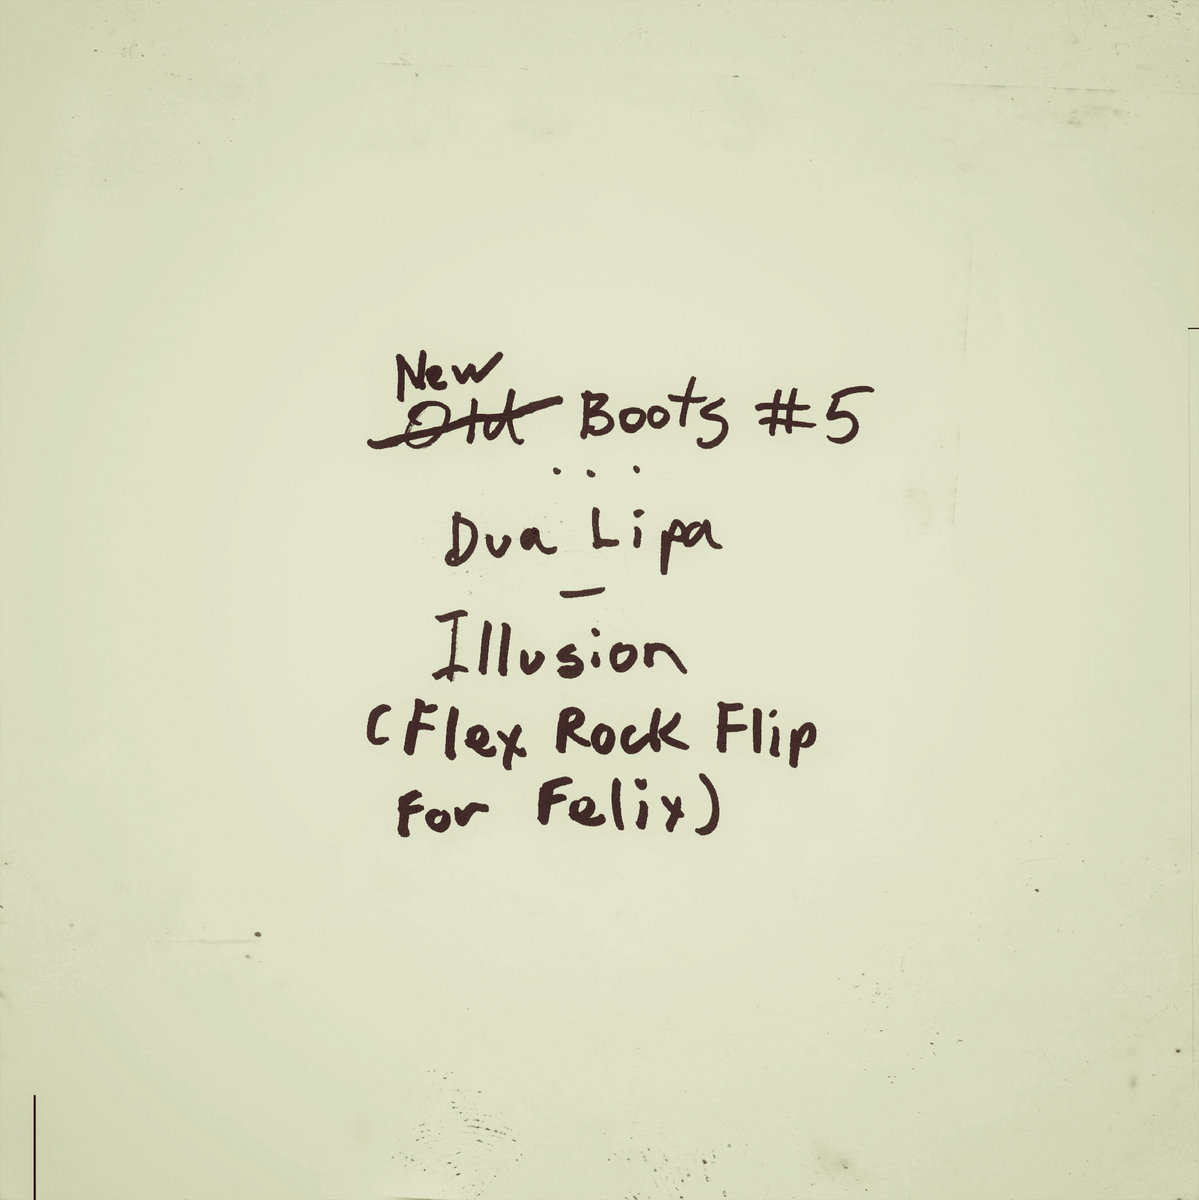 New
Old Boots #5
...
Dua Lipa
—
Illusion
(Flex Rock Flip
For Felix)